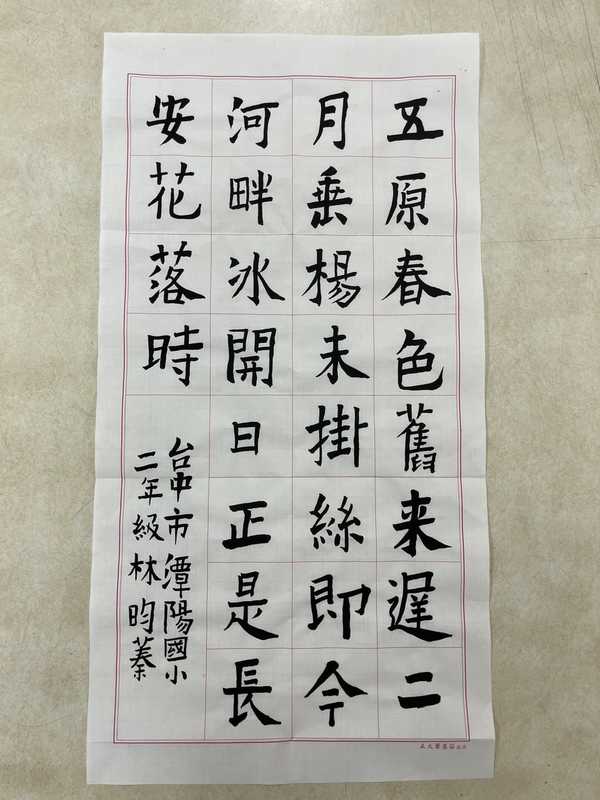 五原春色舊来遲二
月垂楊未掛絲即今
河畔冰開日正是長
安花落時
台中市潭陽國小
二年級林昀蓁